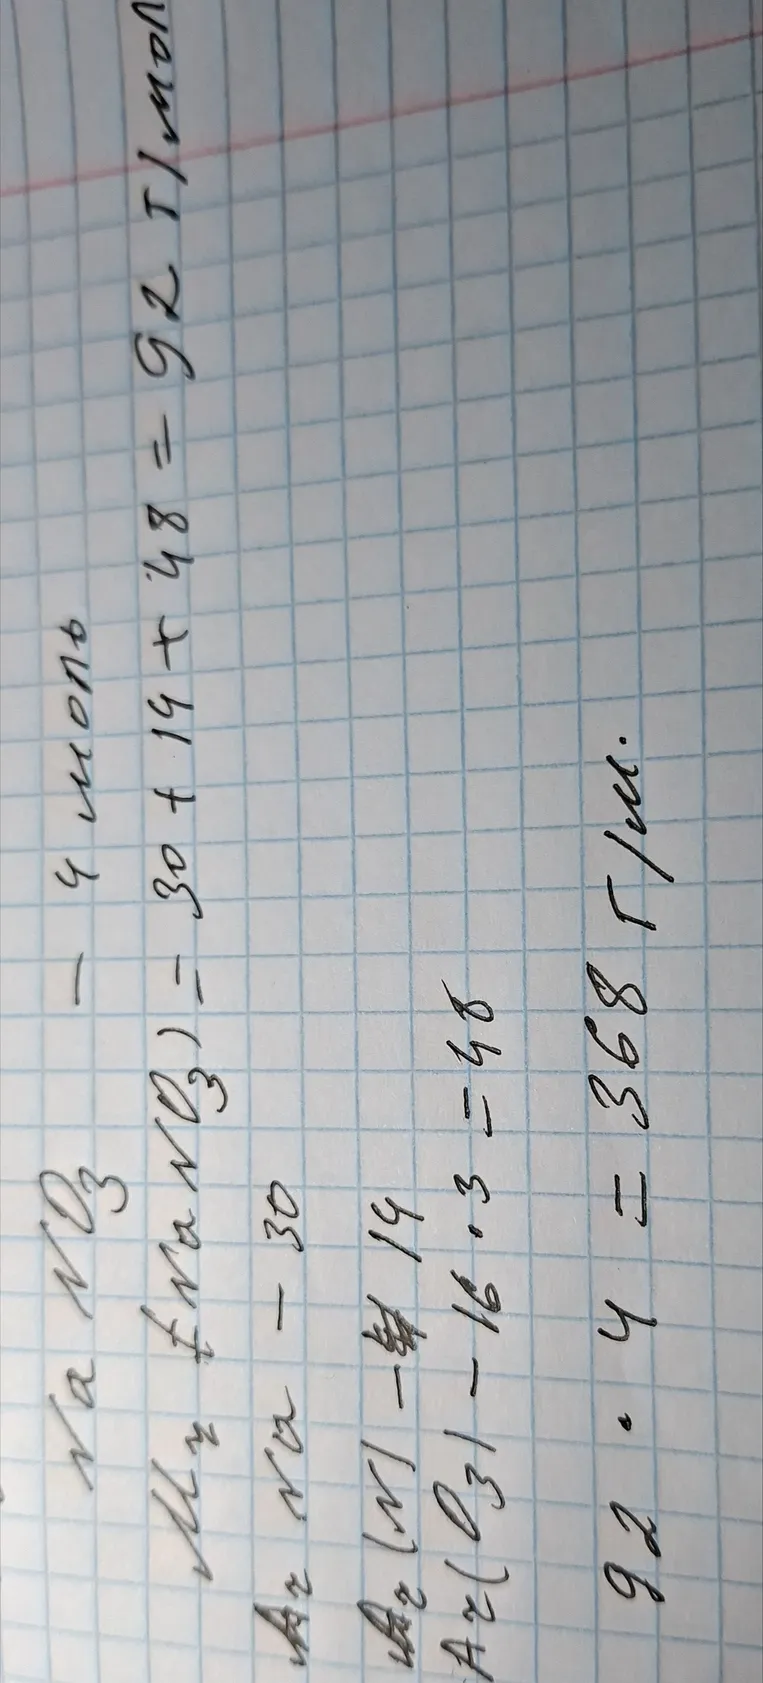 NaNO3 – 4 моль
Mr (NaNO3) = 30 + 14 + 48 = 92 г/мол
Ar Na – 30
Ar (N) – 14
Ar (O3) – 16 · 3 = 48
92 · 4 = 368 г/м.